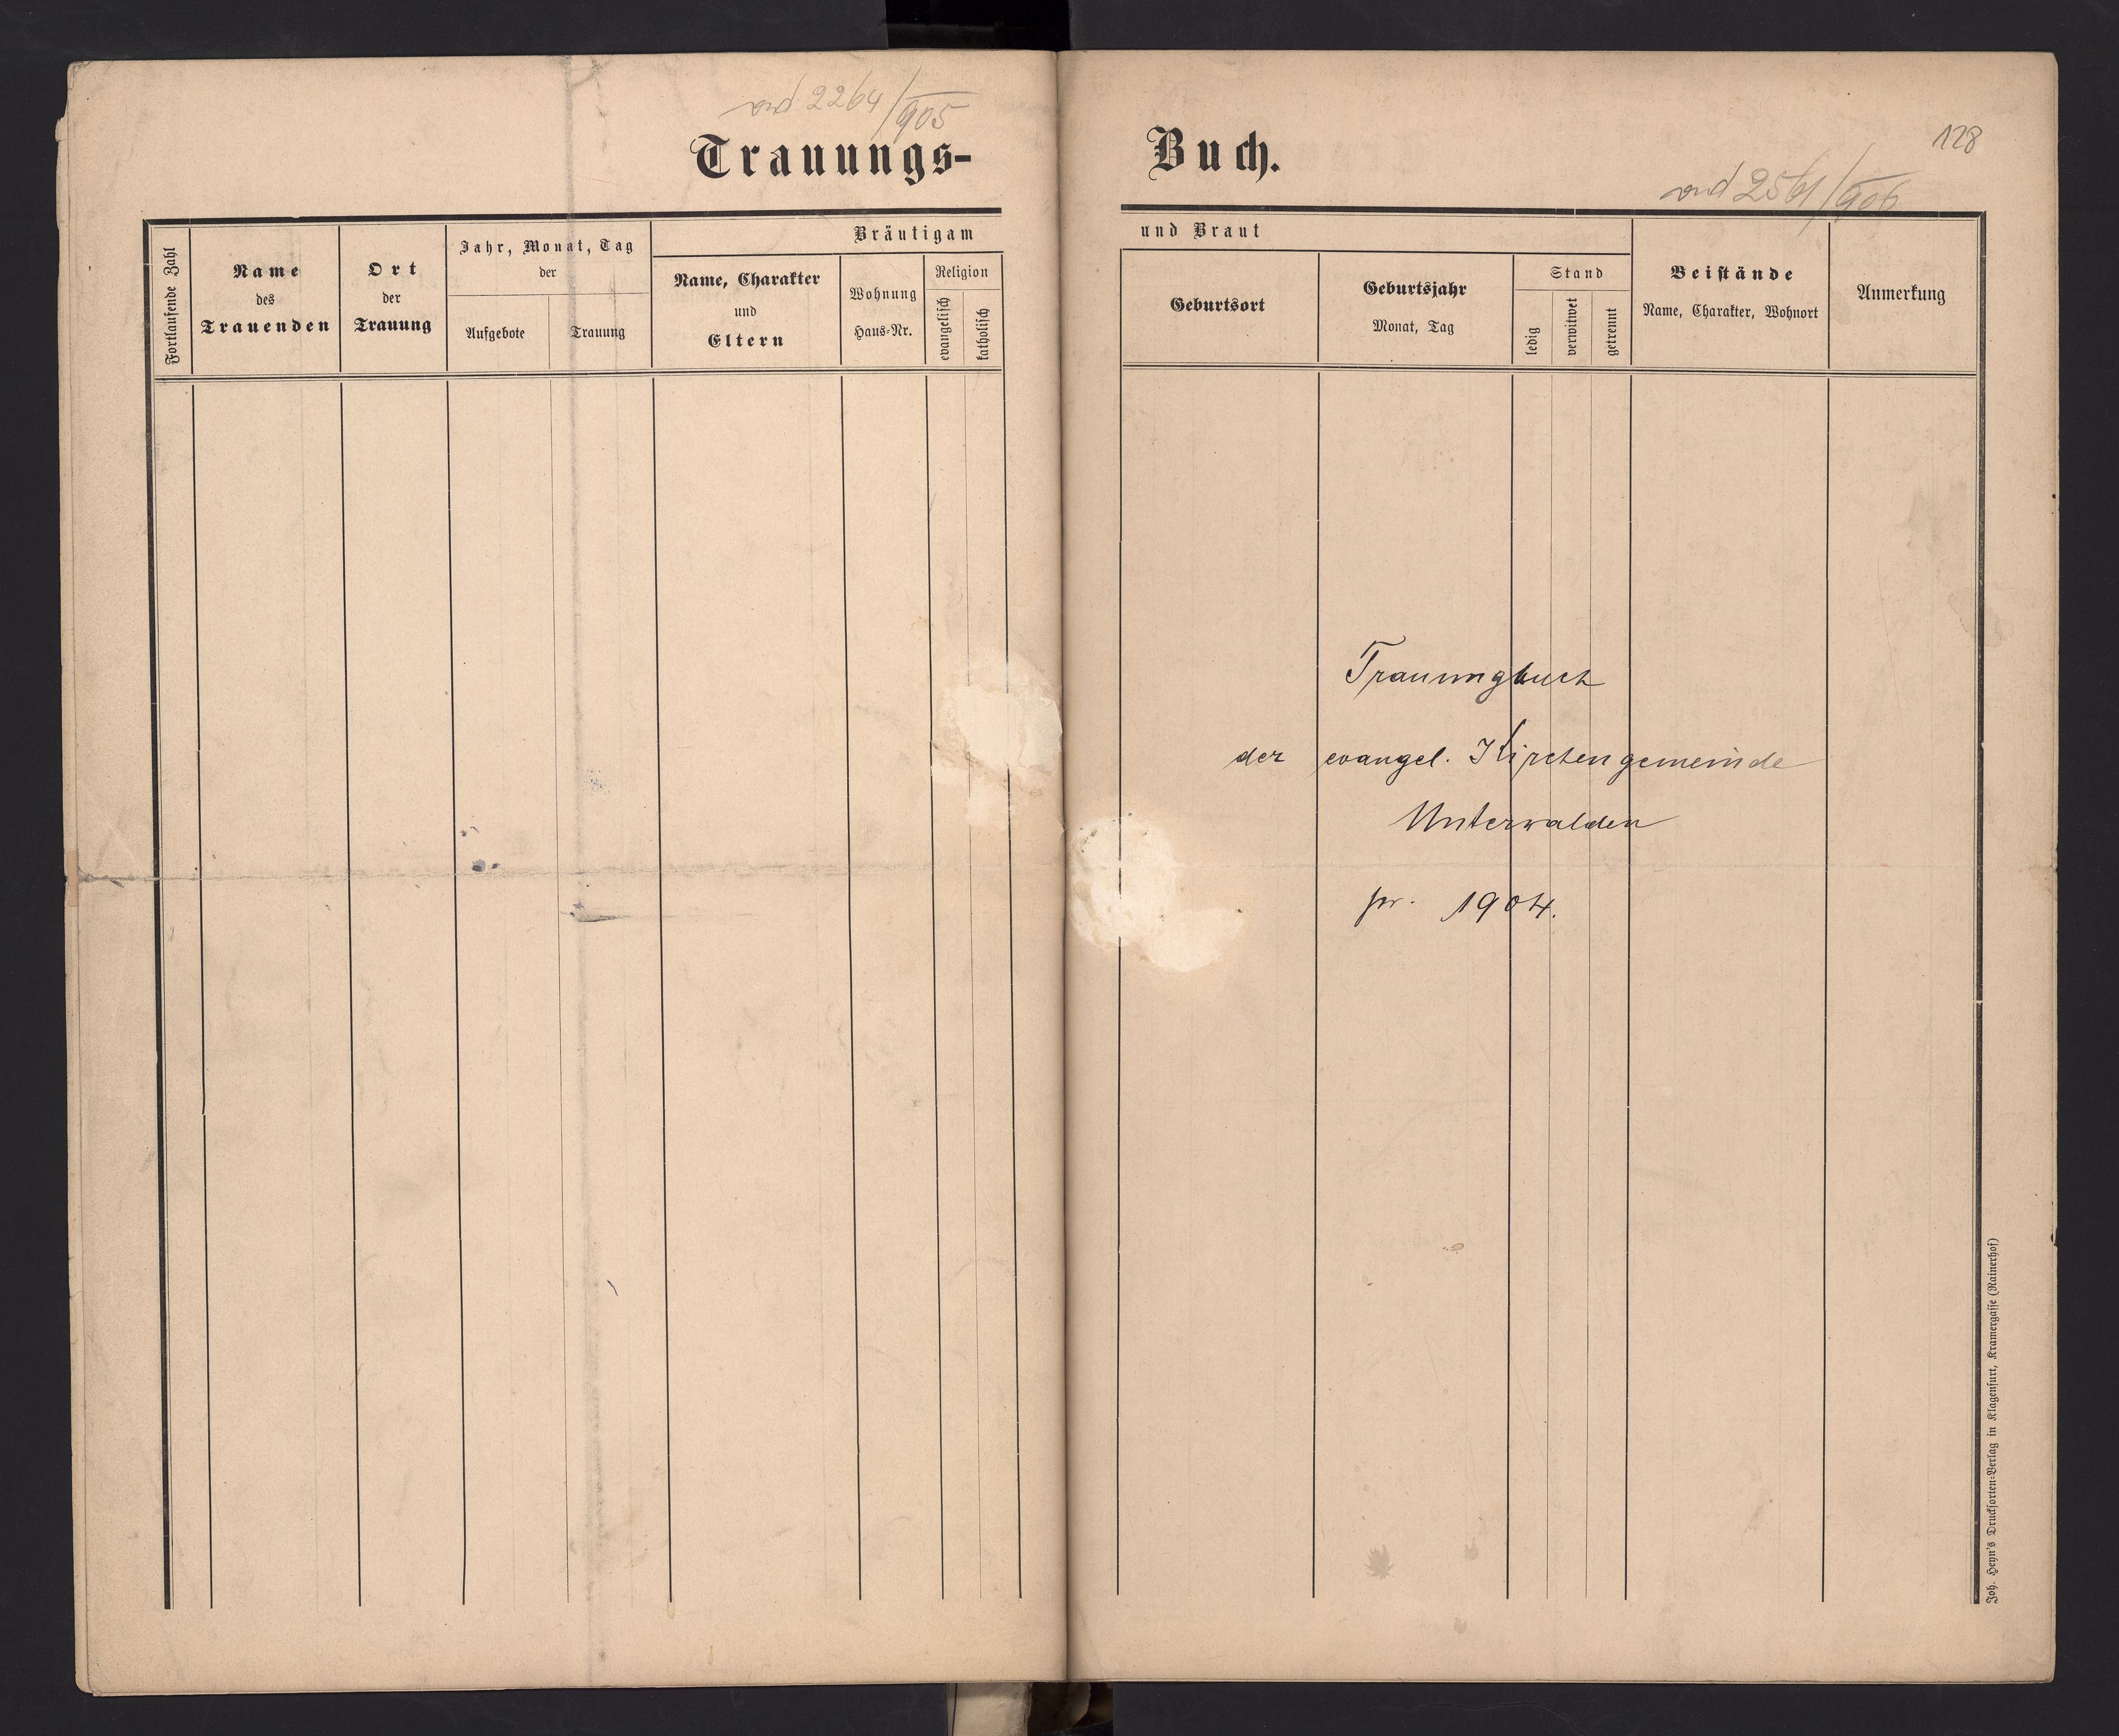 ad 2264/905
Trauungs-
Fortlaufende Zahl
Name
des
Trauenden
Ort
der
Trauung
Jahr, Monat, Tag
der
Aufgebote
Trauung
Bräutigam
Name, Charakter
und
Eltern
Wohnung
Haus-Nr.
Religion
evangelisch
katholisch
Buch.
128
ad 2561/906
und Braut
Geburtsort
Geburtsjahr
Monat, Tag
Stand
ledig
verwitwet
getrennt
Beistände
Name, Charakter, Wohnort
Anmerkung
Trauungbuch
der evangel. Kirchengemeinde
Unterwalden
pr. 1904.
Joh. Heyn's Drucksorten-Verlag in Klagenfurt, Kramergasse (Rainerhof)